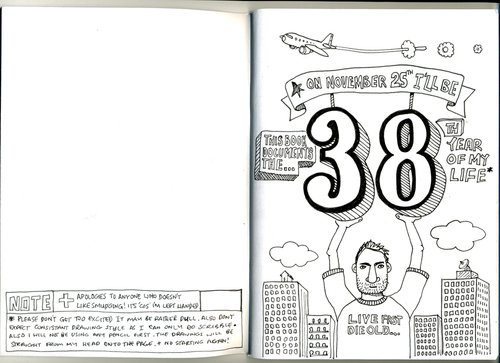 NOTE + APOLOGIES TO ANYONE WHO DOESN'T
LIKE SMUDGING! IT'S 'COS I'M LEFT HANDED
* PLEASE DON'T GET TOO EXCITED IT MAY BE RATHER DULL, ALSO DON'T
EXPECT CONSISTANT DRAWING STYLE AS I CAN ONLY DO SCRIBBLE.
ALSO I WILL NOT BE USING ANY PENCIL FIRST. THE DRAWINGS WILL BE
STRAIGHT FROM MY HEAD ONTO THE PAGE, + NO STARTING AGAIN!
ON NOVEMBER 25TH I'LL BE
38
THIS BOOK
DOCUMENTS
THE...
TH
YEAR
OF MY
LIFE*
LIVE FAST
DIE OLD...